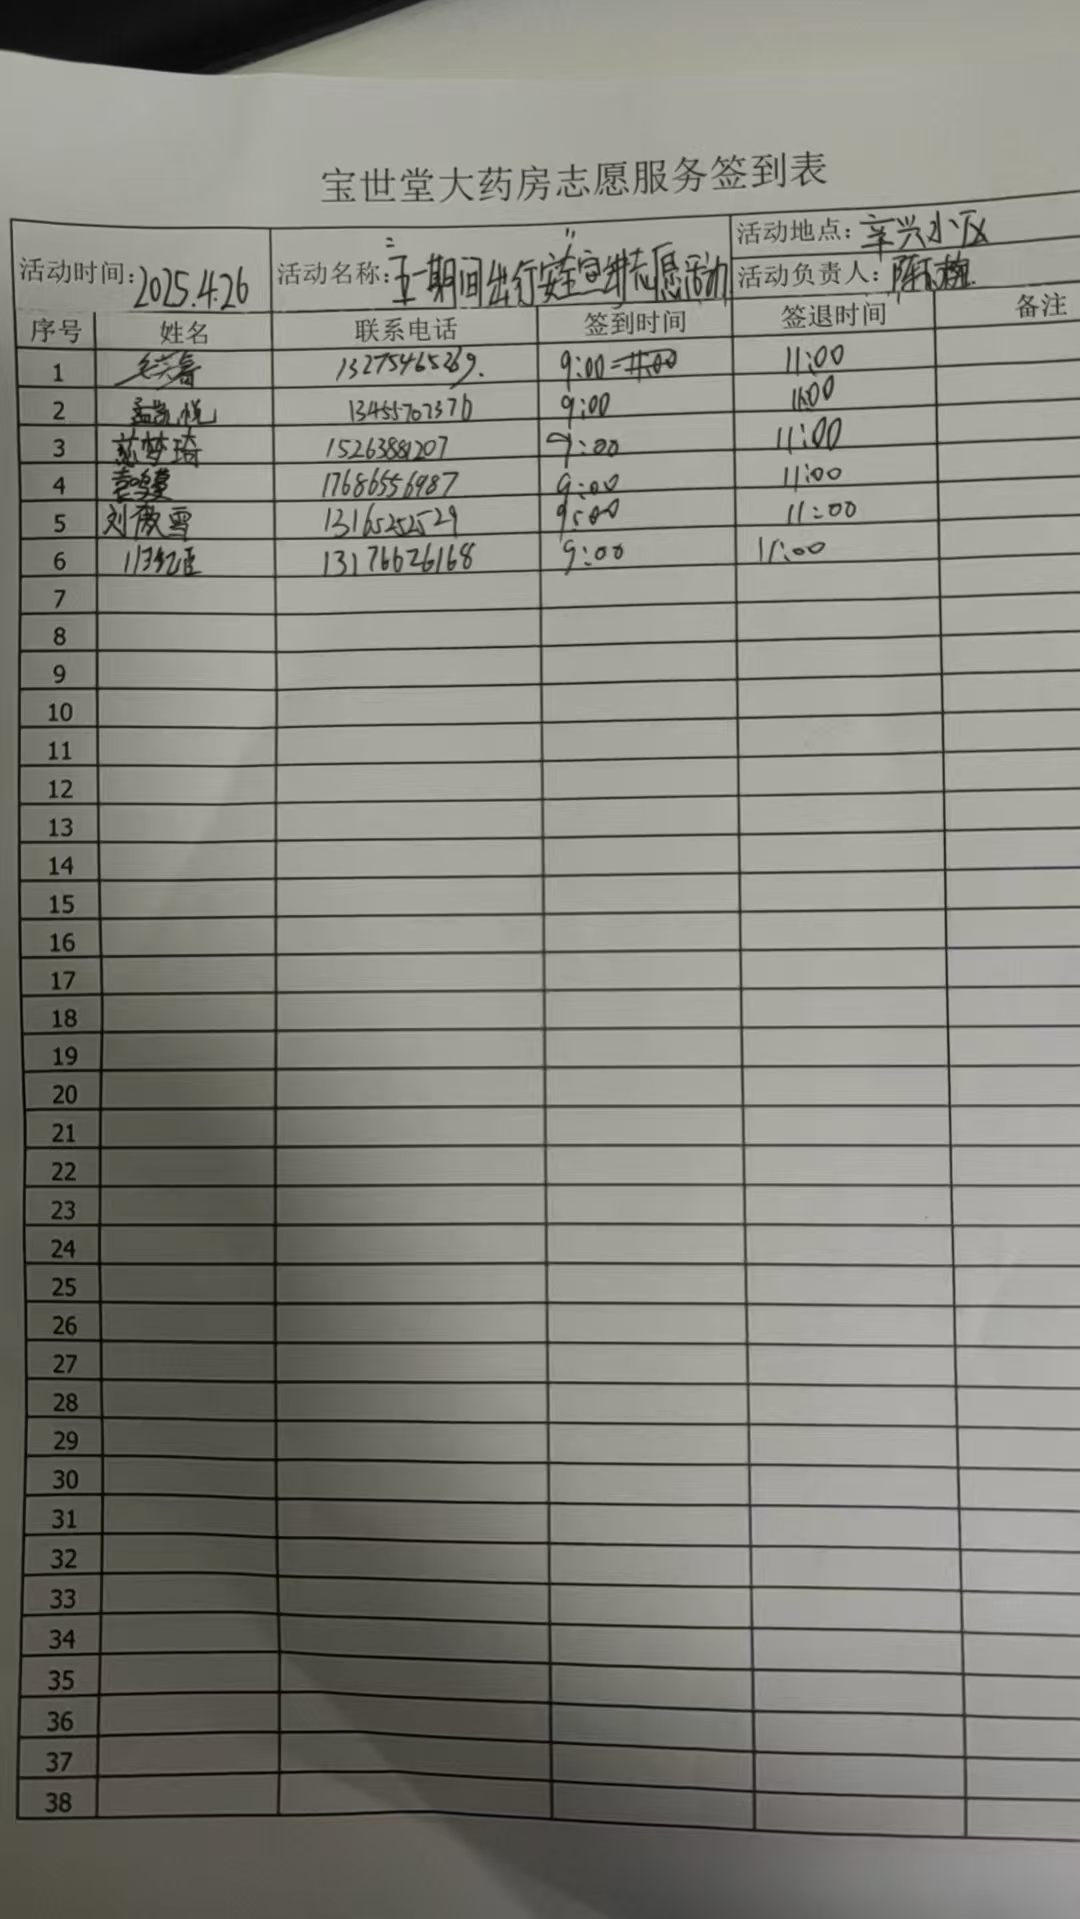 宝世堂大药房志愿服务签到表
活动时间:2025.4.26 活动名称:"五一"期间出行安全宣讲志愿活动 活动地点:辛兴小区
活动负责人:陈
序号 姓名 联系电话 签到时间 签退时间 备注
1 13275465269. 9:00 11:00
2 孟凯悦 13455707376 9:00 11:00
3 梦琦 15263881207 9:00 11:00
4 袁鸣蔓 17686556987 9:00 11:00
5 刘傲雪 13165252529 9:00 11:00
6 13176626168 9:00 11:00
7
8
9
10
11
12
13
14
15
16
17
18
19
20
21
22
23
24
25
26
27
28
29
30
31
32
33
34
35
36
37
38